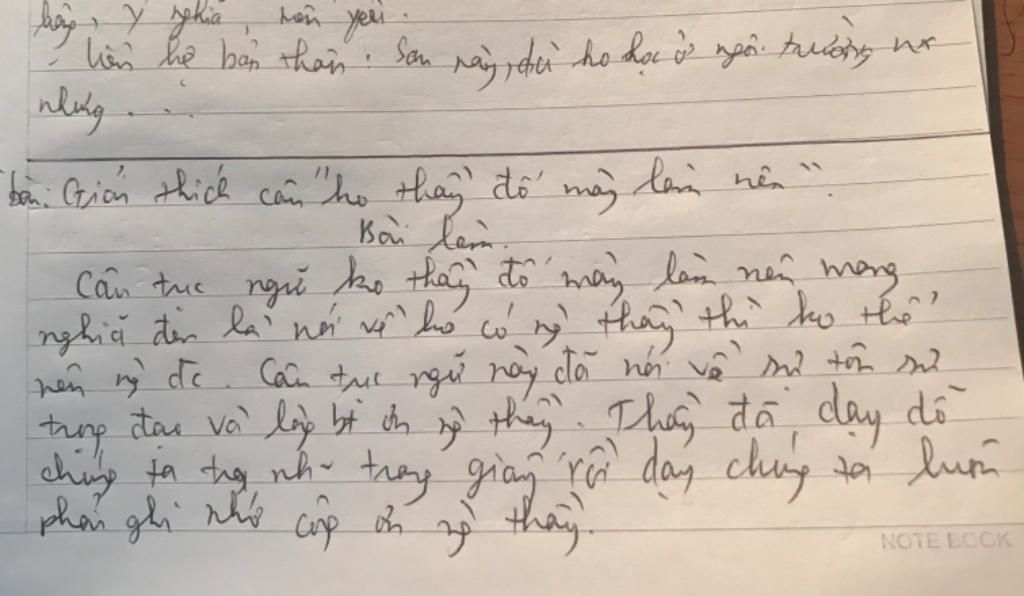 bày, ý nghĩa, mến yêu.
- liên hệ bản thân: Sau này, dù ko học ở ngôi trường nx
nhưng...
bài: Giải thích câu "ko thầy đố mày làm nên".
Bài làm.
Câu tục ngữ ko thầy đố mày làm nên mang
nghĩa đen là nói về ko có ng thầy thì ko thể
nên ng đc. Câu tục ngữ này đã nói về sự tôn sư
trọng đạo và lòng bt ơn ng thầy. Thầy đã dạy dỗ
chúng ta trong gian rồi dạy chúng ta luôn
phải ghi nhớ công ơn ng thầy.
NOTE BOOK